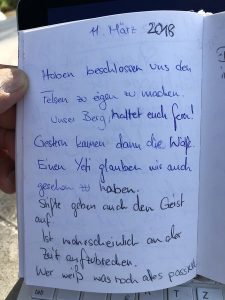 11. März 2018
Haben beschlossen uns den
Felsen zu eigen zu machen.
Unser Berg, haltet euch fern!
Gestern kamen dann die Wölfe.
Einen Yeti glauben wir auch
gesehen zu haben.
Stifte geben auch den Geist
auf
Ist wahrscheinlich an der
Zeit aufzubrechen.
Wer weiß was noch alles passiert